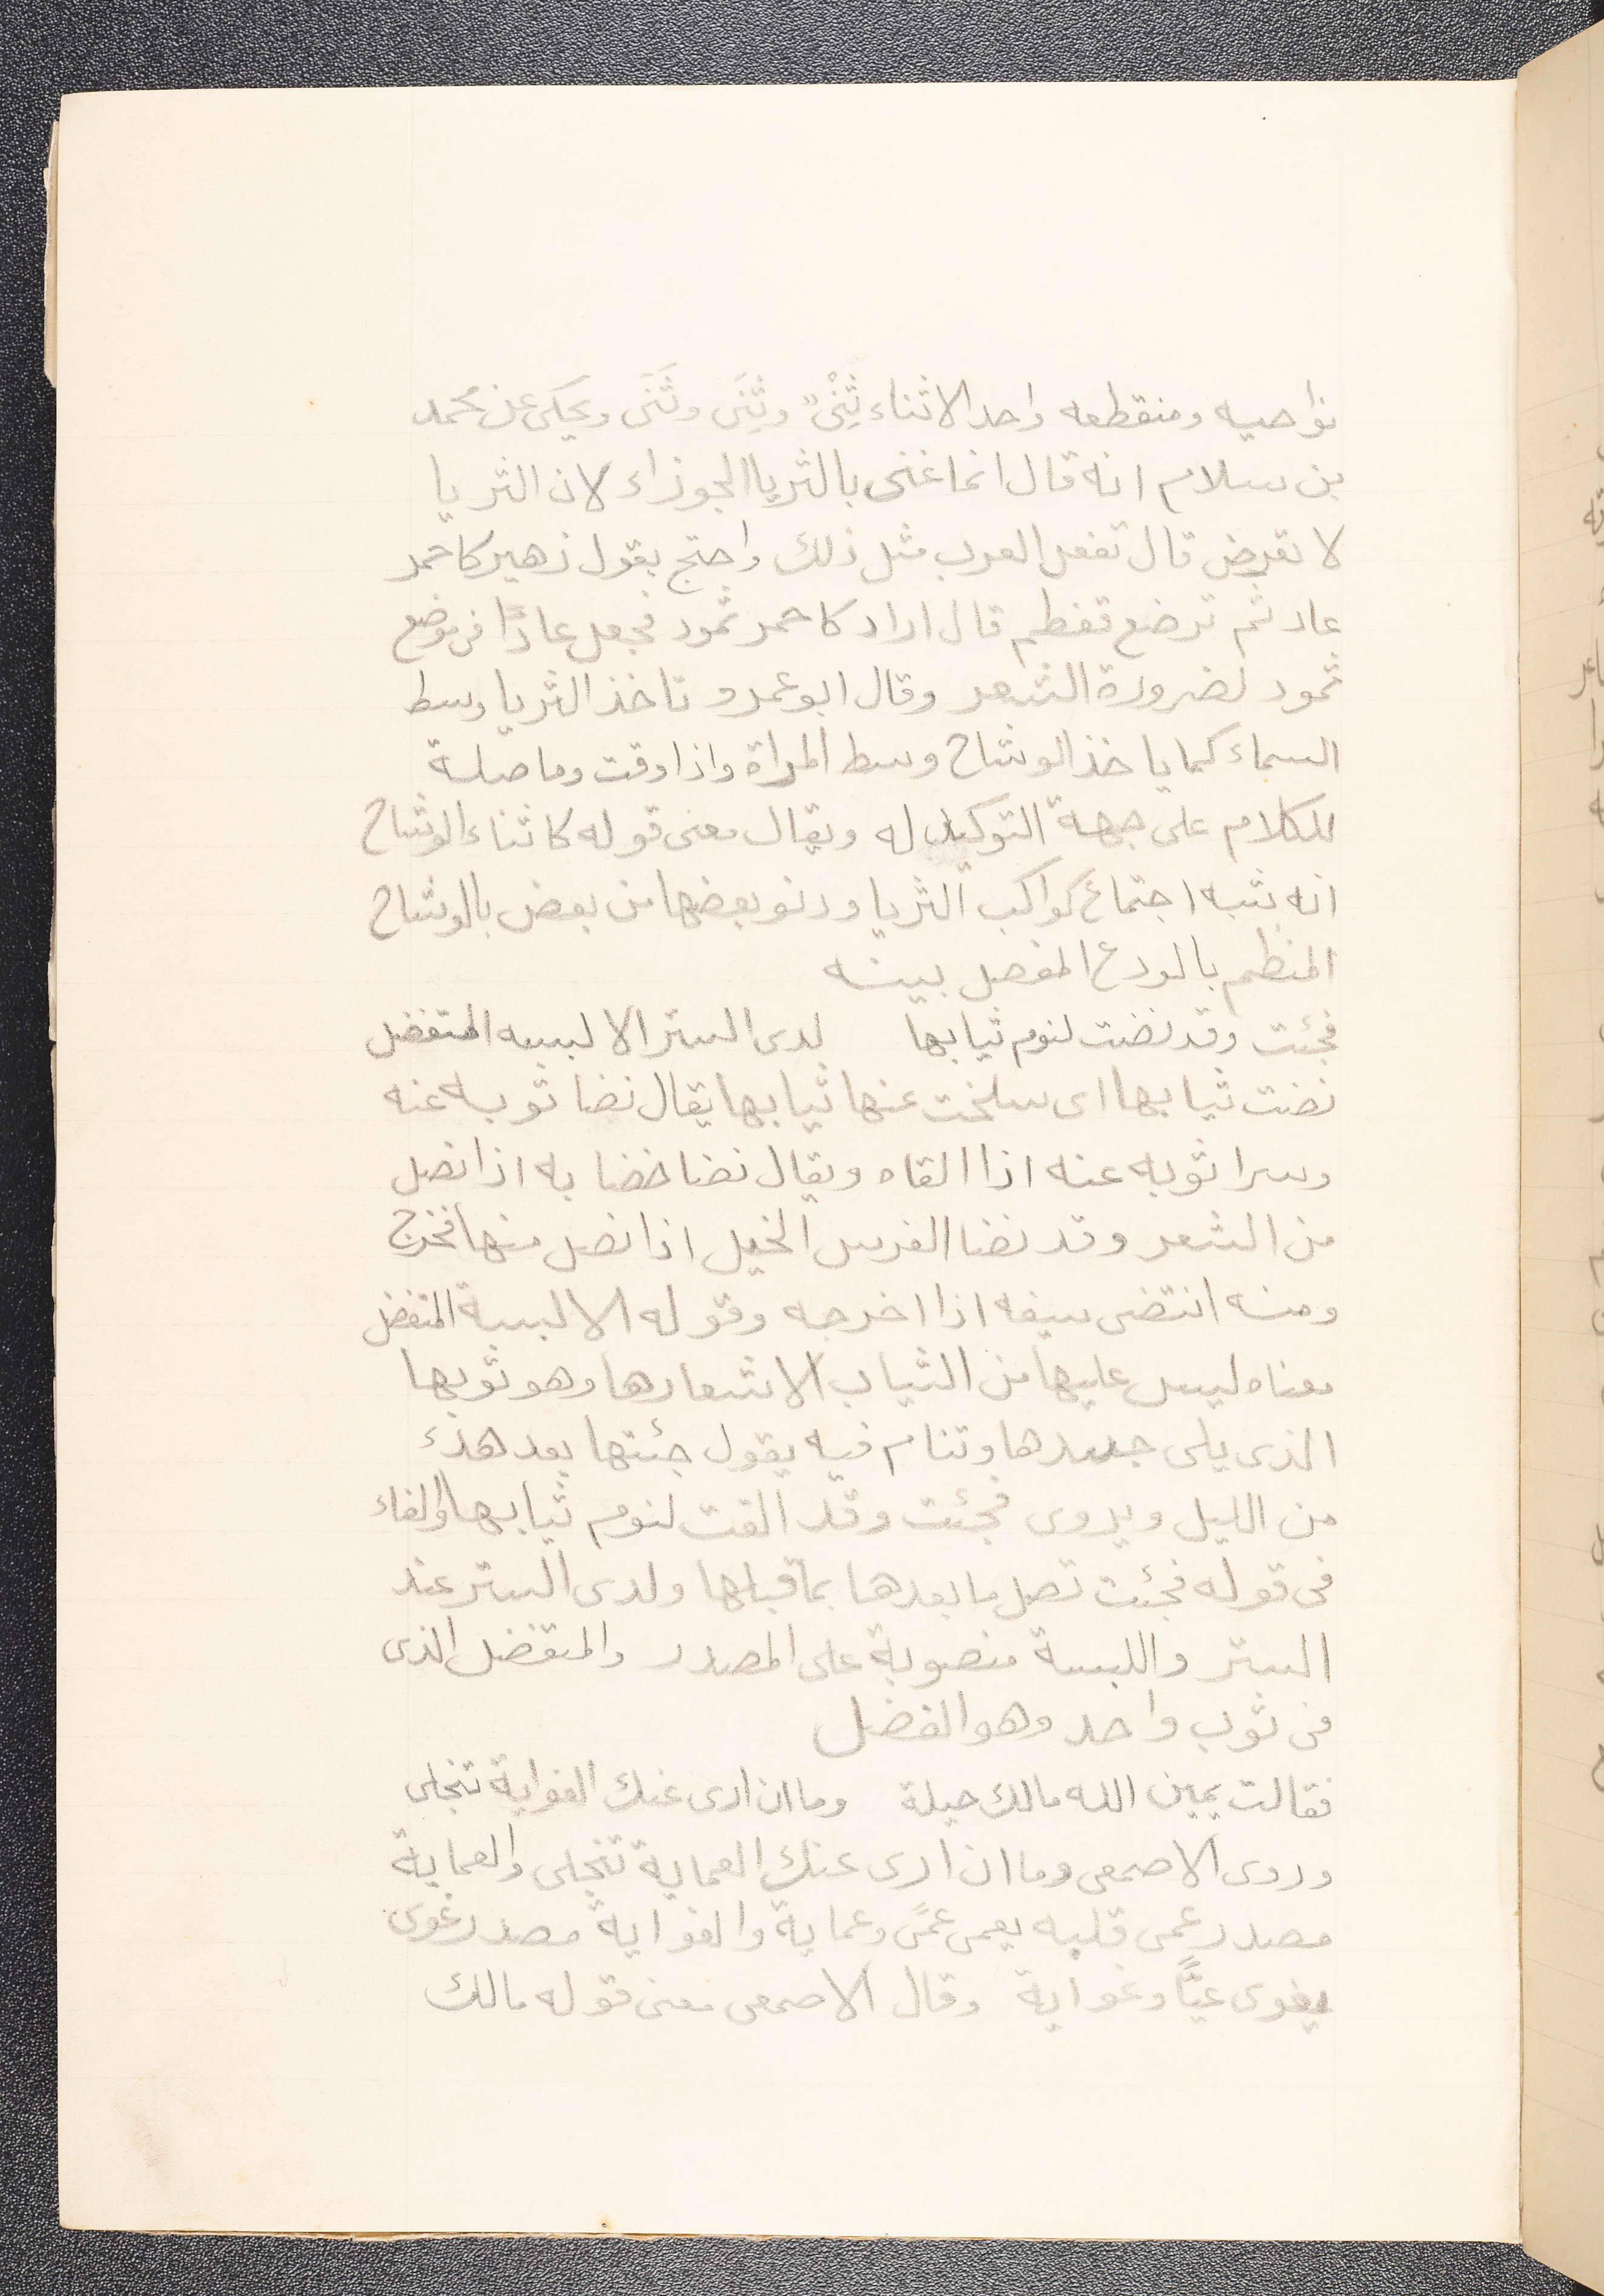 نواحيه ومنقطعه واحد الاثناء ثِنْىٌ وثِنَى وثَنَى ويحكى عن محمد
بن سلام انه قال انما غنى بالثريا الجوزاء لان الثريا
لا تعرض قال تفعل العرب مثل ذلك واحتج بقول زهير كاحمر
عاد ثم ترضع فتفطم قال اراد كاحمر ثمود فجعل عادًا فى موضع
ثمود لضرورة الشعر وقال ابو عمرو تاخذ الثريا وسط
السماء كما ياخذ الوشاح وسط المراة واذا وقت وما صلة
للكلام على جهة التوكيد له ويقال معنى قوله كاثناء الوشاح
انه شبه اجتماع كواكب الثريا ودنو بعضها من بعض بالوشاح
المنظم بالودع المفصل بينه
فجئت وقد نضت لنوم ثيابها لدى الستر الا لبسه المتفضل
نضت ثيابها اى سلخت عنها ثيابها يقال نضا ثوبه عنه
وسرا ثوبه عنه اذا القاه ويقال نضا خضابه اذا نصل
من الشعر وقد نضا الفرس الخيل اذا نصل منها فخرج
ومنه انتضى سيفه اذا اخرجه وقوله الا لبسة المتفضل
معناه ليس عليها من الثياب الا شعارها وهو ثوبها
الذى يلى جسدها وتنام فيه يقول جئتها بعد هدء
من الليل ويروى فجئت وقد القت لنوم ثيابها والفاء
فى قوله فجئت تصل ما بعدها بما قبلها ولدى الستر عند
الستر واللبسة منصوبة على المصدر والمتفضل الذى
فى ثوب واحد وهو الفضل
فقالت يمين الله مالك حيلة وما ان ارى عنك الغواية تنجلى
وروى الاصمعى وما ان ارى عنك العماية تنجلى والعماية
مصدر عمى قلبه يعمى عمًى وعماية والغواية مصدر غوى
يغوى غيًّا وغواية وقال الاصمعى معنى قوله مالك